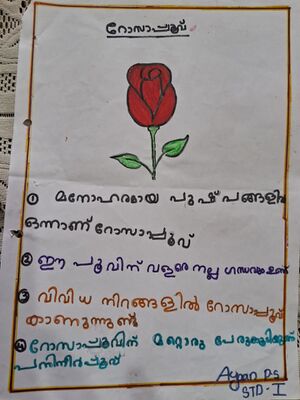 റോസാപ്പൂവ്
① മനോഹരമായ പുഷ്പങ്ങളിൽ
ഒന്നാണ് റോസാപ്പൂവ്
② ഈ പൂവിന് വളരെ നല്ല ഗന്ധമുണ്ട്
③ വിവിധ നിറങ്ങളിൽ റോസാപ്പൂവ്
കാണുന്നുണ്ട്
④ റോസാപ്പൂവിന് മറ്റൊരു പേരുകൂടിയുണ്ട്
പനിനീർപ്പൂവ്
Ayaan P.S
STD-I